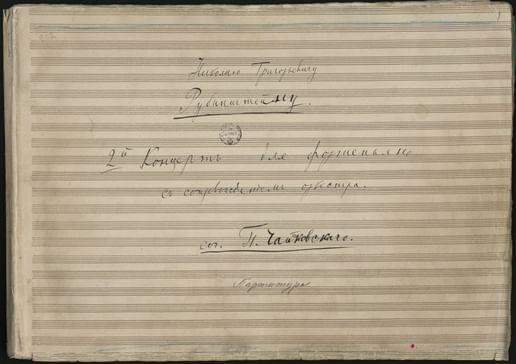 Николаю Григорьевичу
Рубинштейну.
2й Концертъ для фортепьяно
съ сопровожденіемъ оркестра.
соч. П. Чайковскаго.
Партитура